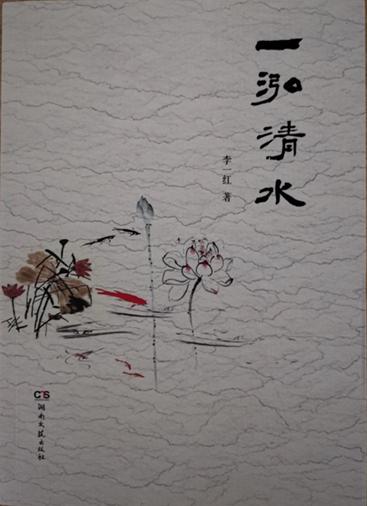 一泓清水
李一红 著
CS
湖南文艺出版社